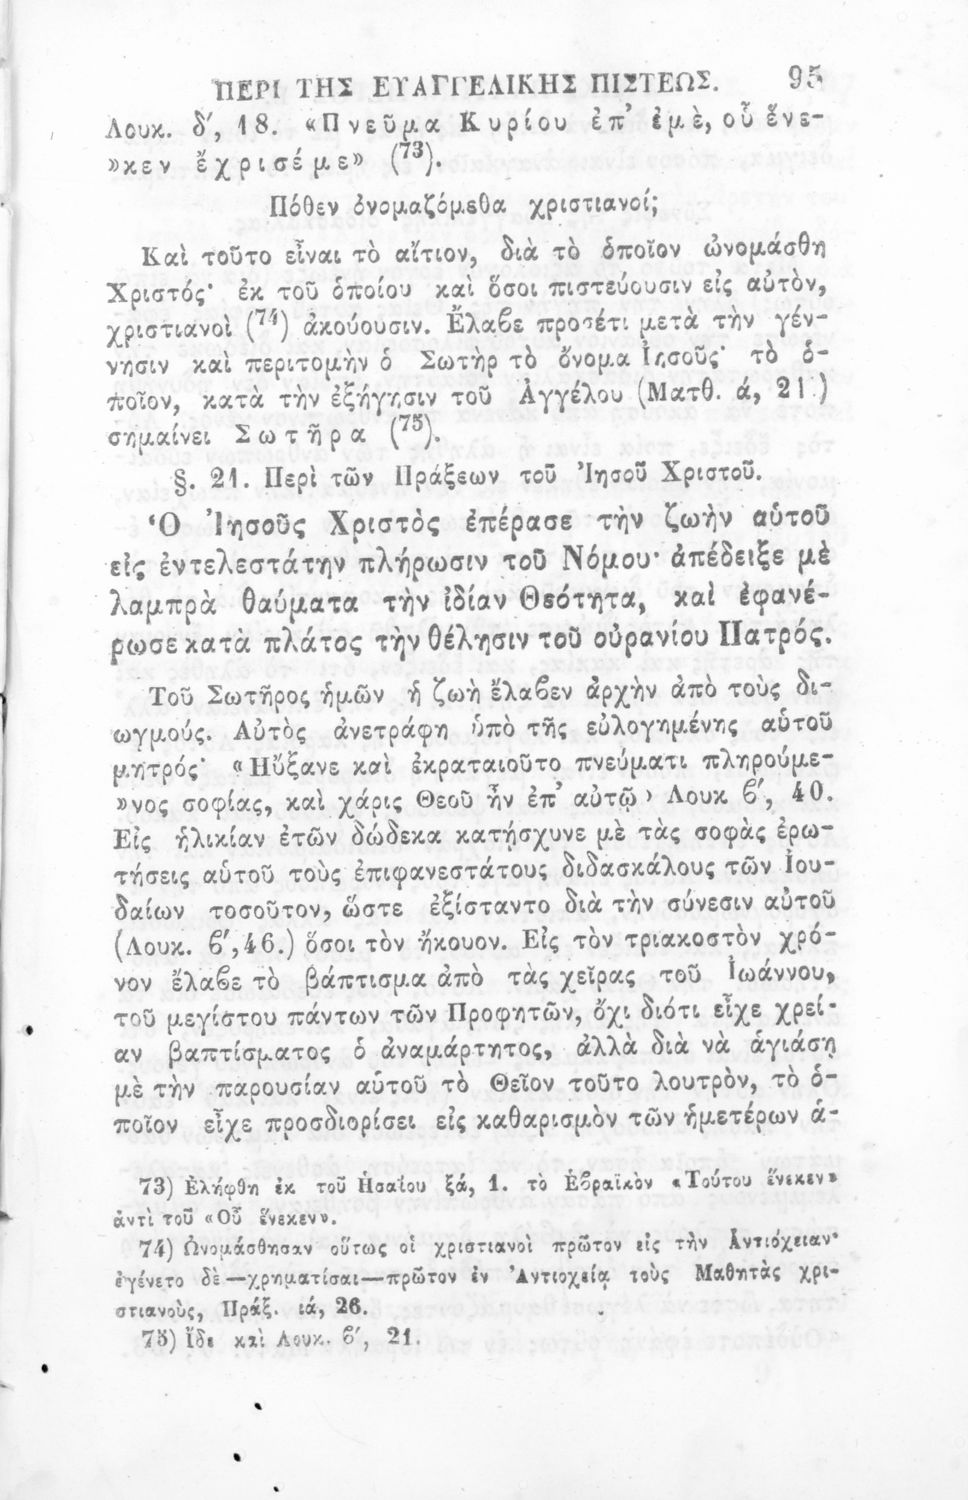 ΠΕΡΙ ΤΗΣ ΕΥΑΓΓΕΛΙΚΗΣ ΠΙΣΤΕΩΣ. 95
Λουκ. δ', 18. «Πνεῦμα Κυρίου ἐπ' ἐμὲ, οὗ ἕνε-
»κεν ἔχρισέ με» (73).
Πόθεν ὀνομαζόμεθα χριστιανοί;
Καὶ τοῦτο εἶναι τὸ αἴτιον, διὰ τὸ ὁποῖον ὠνομάσθη
Χριστός· ἐκ τοῦ ὁποίου καὶ ὅσοι πιστεύουσιν εἰς αὐτὸν,
χριστιανοὶ (74) ἀκούουσιν. Ἔλαβε προσέτι μετὰ τὴν γέν-
νησιν καὶ περιτομὴν ὁ Σωτὴρ τὸ ὄνομα Ἰησοῦς· τὸ ὁ-
ποῖον, κατὰ τὴν ἐξήγησιν τοῦ Ἀγγέλου (Ματθ. ά, 21.)
σημαίνει Σωτῆρα (75).
§. 21. Περὶ τῶν Πράξεων τοῦ Ἰησοῦ Χριστοῦ.
Ὁ Ἰησοῦς Χριστὸς ἐπέρασε τὴν ζωὴν αὑτοῦ
εἰς ἐντελεστάτην πλήρωσιν τοῦ Νόμου· ἀπέδειξε μὲ
λαμπρὰ θαύματα τὴν ἰδίαν Θεότητα, καὶ ἐφανέ-
ρωσε κατὰ πλάτος τὴν θέλησιν τοῦ οὐρανίου Πατρός.
Τοῦ Σωτῆρος ἡμῶν ἡ ζωὴ ἔλαβεν ἀρχὴν ἀπὸ τοὺς δι-
ωγμούς. Αὐτὸς ἀνετράφη ὑπὸ τῆς εὐλογημένης αὑτοῦ
μητρός· «Ηὔξανε καὶ ἐκραταιοῦτο πνεύματι πληρούμε-
»νος σοφίας, καὶ χάρις Θεοῦ ἦν ἐπ' αὐτῷ› Λουκ ϐ', 40.
Εἰς ἡλικίαν ἐτῶν δώδεκα κατήσχυνε μὲ τὰς σοφὰς ἐρω-
τήσεις αὑτοῦ τοὺς ἐπιφανεστάτους διδασκάλους τῶν Ἰου-
δαίων τοσοῦτον, ὥστε ἐξίσταντο διὰ τὴν σύνεσιν αὐτοῦ
(Λουκ. ϐ', 46.) ὅσοι τὸν ἤκουον. Εἰς τὸν τριακοστὸν χρό-
νον ἔλαβε τὸ βάπτισμα ἀπὸ τὰς χεῖρας τοῦ Ἰωάννου,
τοῦ μεγίστου πάντων τῶν Προφητῶν, ὄχι διότι εἶχε χρεί-
αν βαπτίσματος ὁ ἀναμάρτητος, ἀλλὰ διὰ νὰ ἁγιάσῃ
μὲ τὴν παρουσίαν αὑτοῦ τὸ Θεῖον τοῦτο λουτρὸν, τὸ ὁ-
ποῖον εἶχε προσδιορίσει εἰς καθαρισμὸν τῶν ἡμετέρων ἁ-
73) Ἐλήφθη ἐκ τοῦ Ἡσαΐου ξά, 1. τὸ Ἑβραϊκὸν «Τούτου ἕνεκεν»
ἀντὶ τοῦ «Οὗ ἕνεκεν».
74) Ὠνομάσθησαν οὕτως οἱ χριστιανοὶ πρῶτον εἰς τὴν Ἀντιόχειαν·
ἐγένετο δὲ—χρηματίσαι—πρῶτον ἐν Ἀντιοχείᾳ τοὺς Μαθητὰς χρι-
στιανοὺς, Πράξ. ιά, 26.
75) Ἴδε καὶ Λουκ. ϐ', 21.